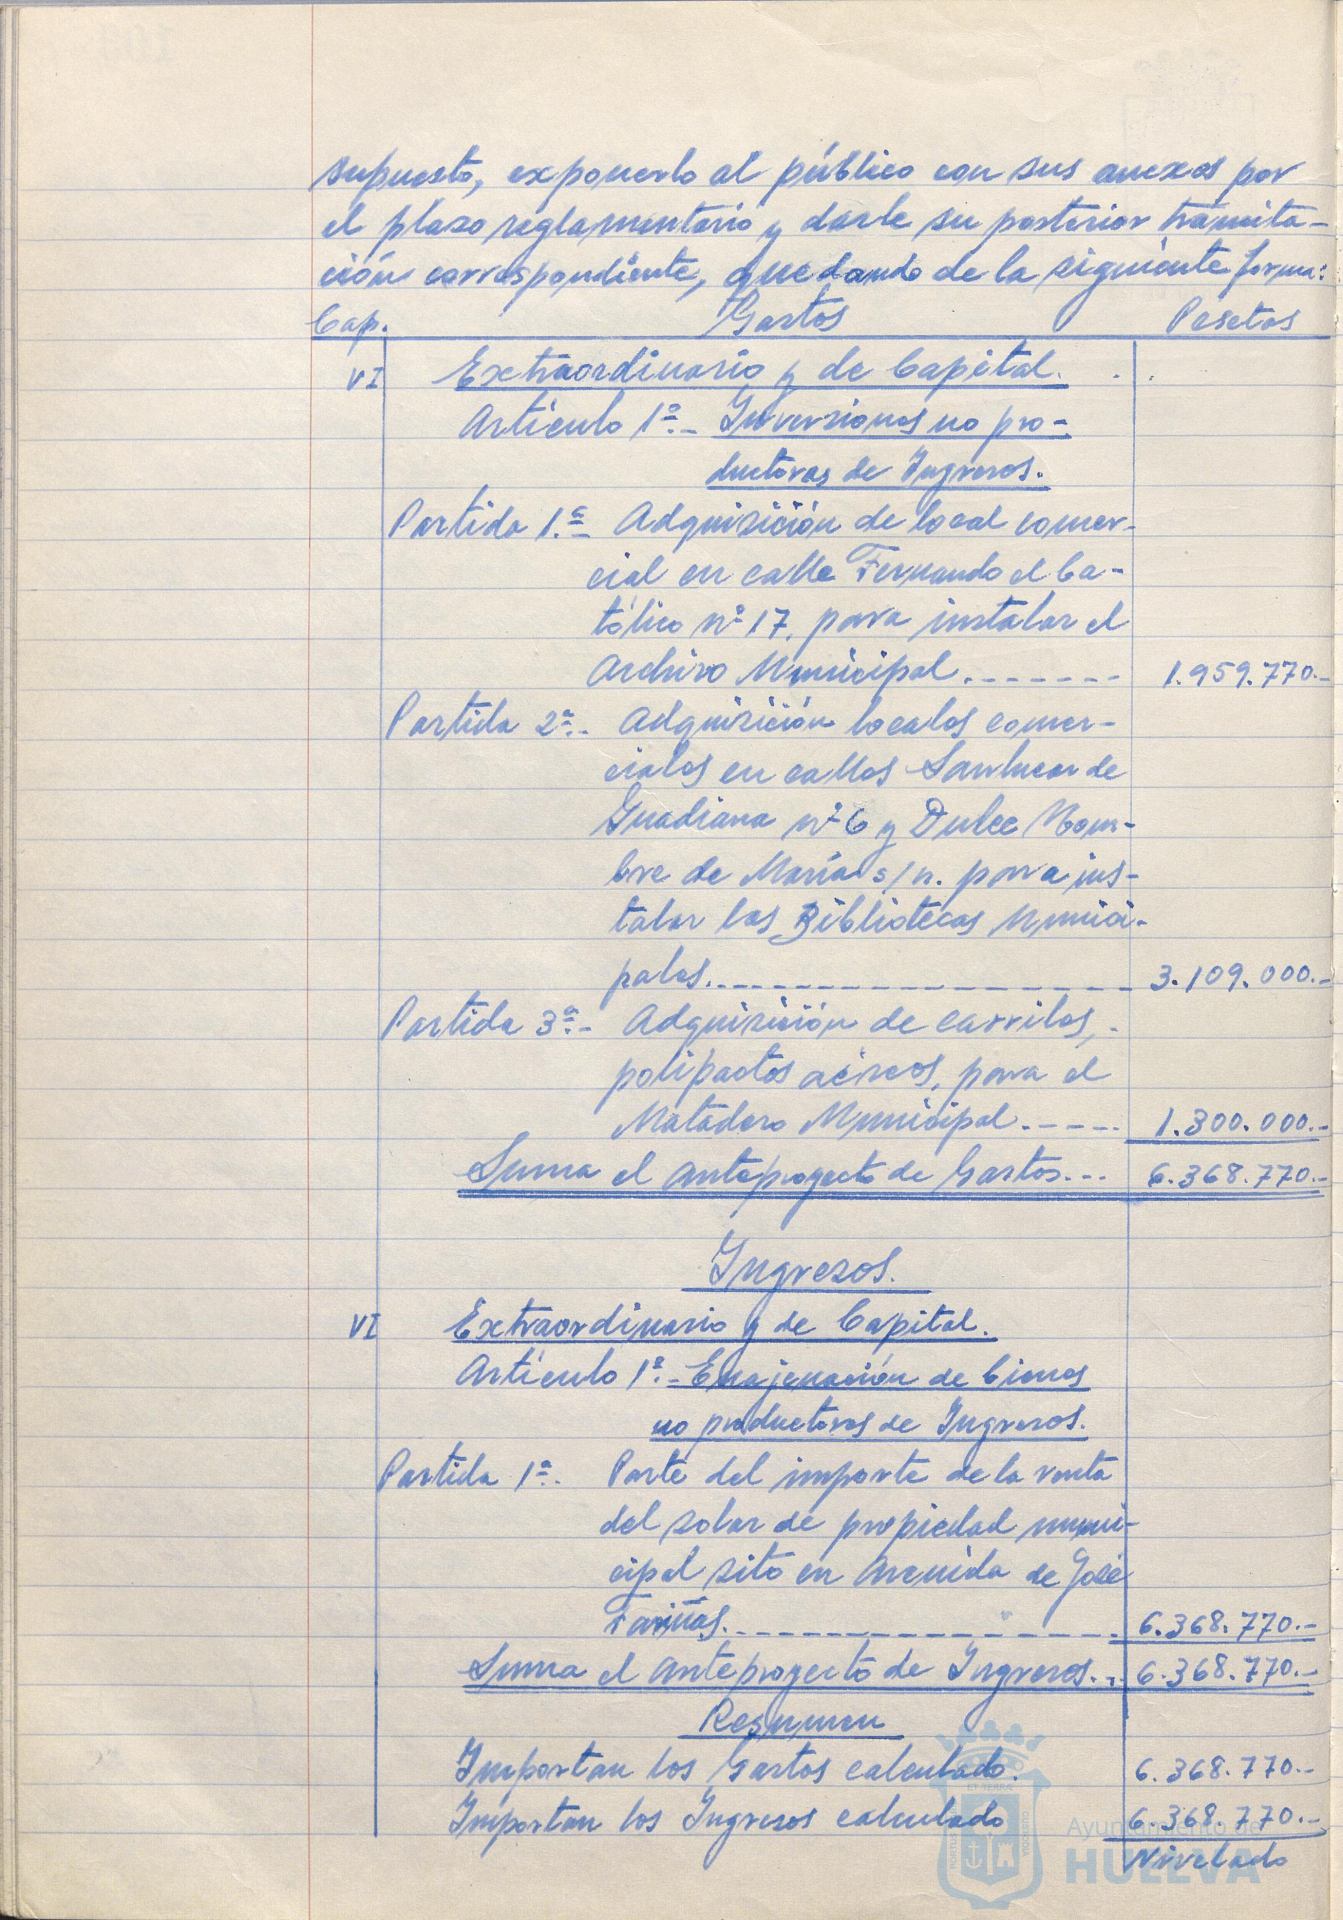 supuesto, exponerlo al público con sus anexos por
el plazo reglamentario y darle su posterior tramita-
ción correspondiente, quedando de la siguiente forma:
Cap. Gastos Pesetas
VI Extraordinario y de Capital.
Artículo 1º.- Inversiones no pro-
ductoras de Ingresos.
Partida 1.ª Adquisición de local comer-
cial en calle Fernando el Ca-
tólico nº 17, para instalar el
Archivo Municipal.------- 1.959.770.-
Partida 2ª.- Adquisición locales comer-
ciales en calles Sanlucar de
Guadiana nº 6 y Dulce Nom-
bre de María s/n. para ins-
talar las Bibliotecas Munici-
pales.---------------- 3.109.000.-
Partida 3ª.- Adquisición de carriles,
polipastos aéreos, para el
Matadero Municipal.----- 1.300.000.-
Suma el anteproyecto de Gastos... 6.368.770.-
Ingresos.
VI Extraordinario y de Capital.
Artículo 1º.- Enajenación de bienes
no productores de Ingresos.
Partida 1ª.- Parte del importe de la venta
del solar de propiedad muni-
cipal sito en Avenida de José
Fariñas.---------------- 6.368.770.-
Suma el anteproyecto de Ingresos... 6.368.770.-
Resumen
Importan los Gastos calculado. 6.368.770.-
Importan los Ingresos calculado 6.368.770.-
Nivelado
Ayuntamiento de
HUELVA